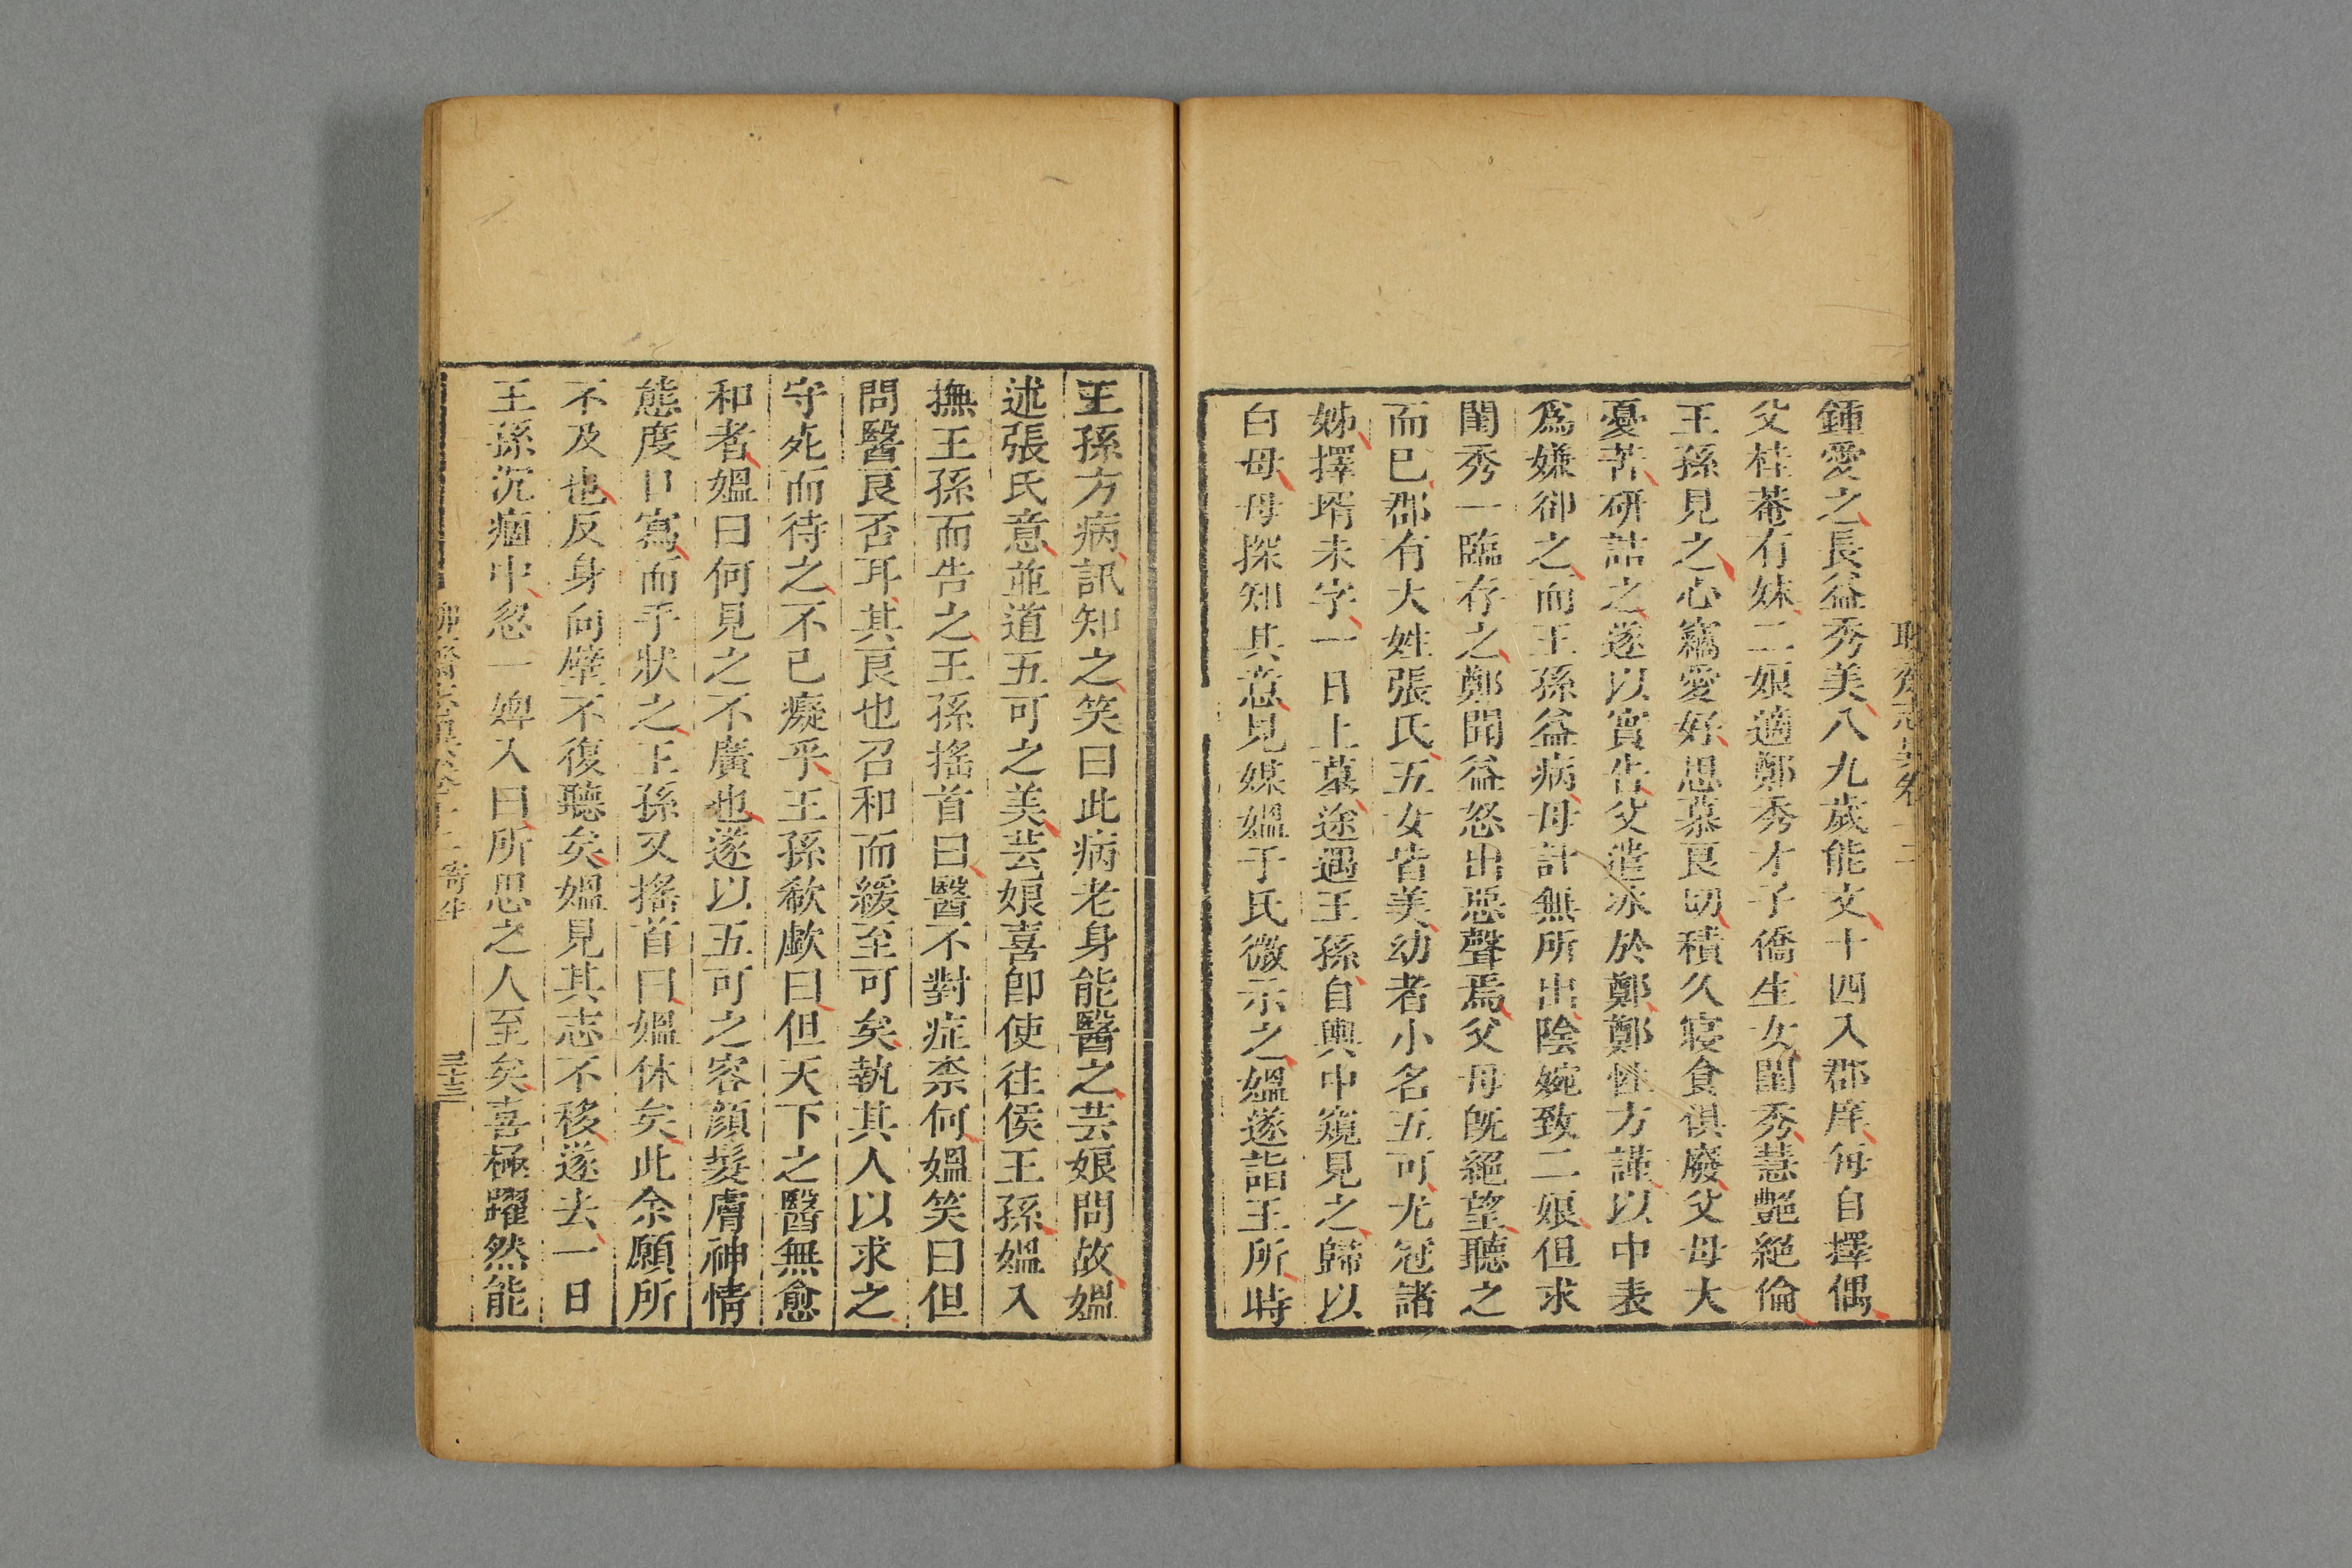 鍾愛之長益秀美八九歲能文十四入郡庠每自擇偶
父桂菴有妹二娘適鄭秀才子僑生女閨秀慧艷絕倫
王孫見之心竊愛好思慕良切積久寢食俱廢父母大
憂苦研詰之遂以實告父遣冰於鄭鄭性方謹以中表
爲嫌卻之而王孫益病母計無所出陰婉致二娘但求
閨秀一臨存之鄭聞益怒出惡聲焉父母旣絕望聽之
而已郡有大姓張氏五女皆美幼者小名五可尤冠諸
姊擇壻未字一日上墓途遇王孫自輿中窺見之歸以
白母母探知其意見媒媼于氏微示之媼遂詣王所時
王孫方病訊知之笑曰此病老身能醫之芸娘問故媼
述張氏意並道五可之美芸娘喜卽使往侯王孫媼入
撫王孫而告之王孫搖首曰醫不對症柰何媼笑曰但
問醫良否耳其良也召和而緩至可矣執其人以求之
守死而待之不已癡乎王孫欷歔曰但天下之醫無愈
和者媼曰何見之不廣也遂以五可之容顏髮膚神情
態度口寫而手狀之王孫又搖首曰媼休矣此余願所
不及也反身向壁不復聽矣媼見其志不移遂去一日
王孫沉痼中忽一婢入曰所思之人至矣喜極躍然能
寄生
三十三